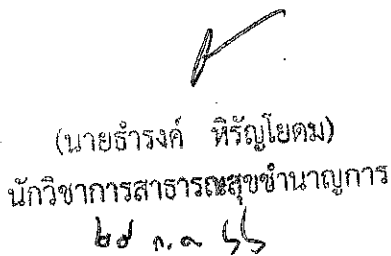 (นายธำรงค์ หิรัญโยดม)
นักวิชาการสาธารณสุขชำนาญการ
ก.ค ๖๖